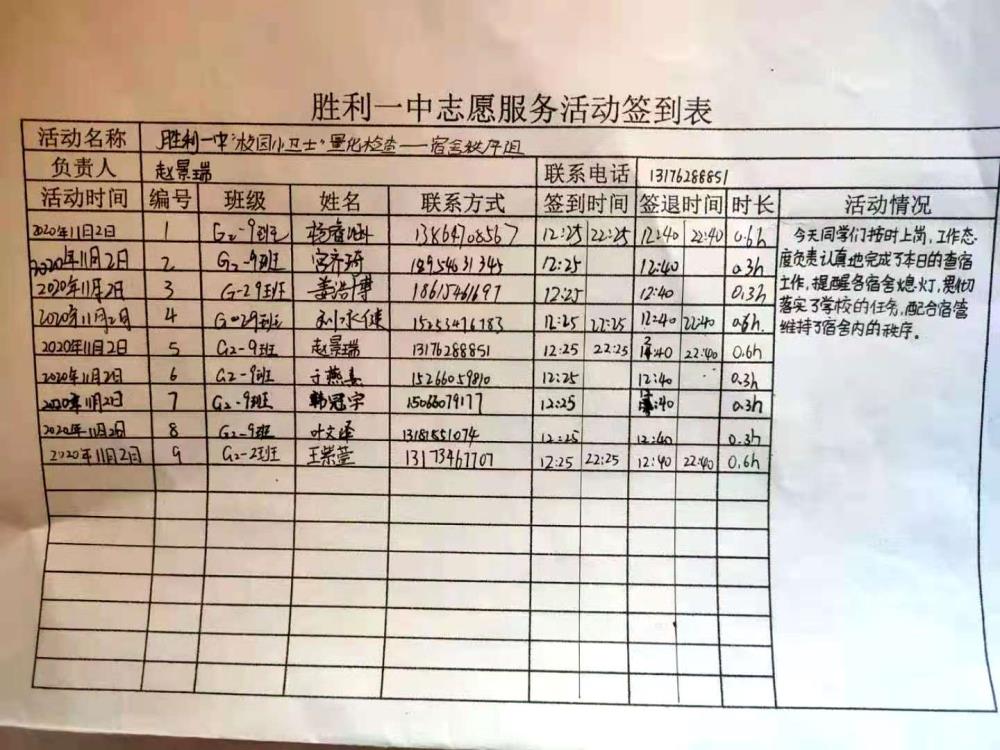 胜利一中志愿服务活动签到表
活动名称 胜利一中"校园小卫士"量化检查——宿舍秩序组
负责人 赵景瑞 联系电话 13176288851
活动时间 编号 班级 姓名 联系方式 签到时间 签退时间 时长 活动情况
2020年11月2日 1 G2-9班 13864708567 12:25 22:25 12:40 22:40 0.6h
2020年11月2日 2 G2-9班 宫齐琦 18954631345 12:25 12:40 0.3h
2020年11月2日 3 G-29班 姜浩博 18615461697 12:25 12:40 0.3h
2020年11月2日 4 29班 15253476183 12:25 22:25 12:40 22:40 0.6h.
2020年11月2日 5 G2-9班 赵景瑞 13176288851 12:25 22:25 22:40 0.6h
2020年11月2日 6 G2-9班 15266059810 12:25 12:40 0.3h
2020年11月2日 7 G2-9班 韩冠宇 15066079177 12:25 :40 0.3h
2020年11月2日 8 G2-9班 叶文泽 13181851074 12:25 12:40 0.3h
2020年11月2日 9 G2-2班 13173467707 12:25 22:25 12:40 22:40 0.6h
今天同学们按时上岗,工作态
度负责认真地完成了本日的查宿
工作,提醒各宿舍熄灯,贯彻
落实了学校的任务,配合宿管
维持了宿舍内的秩序。